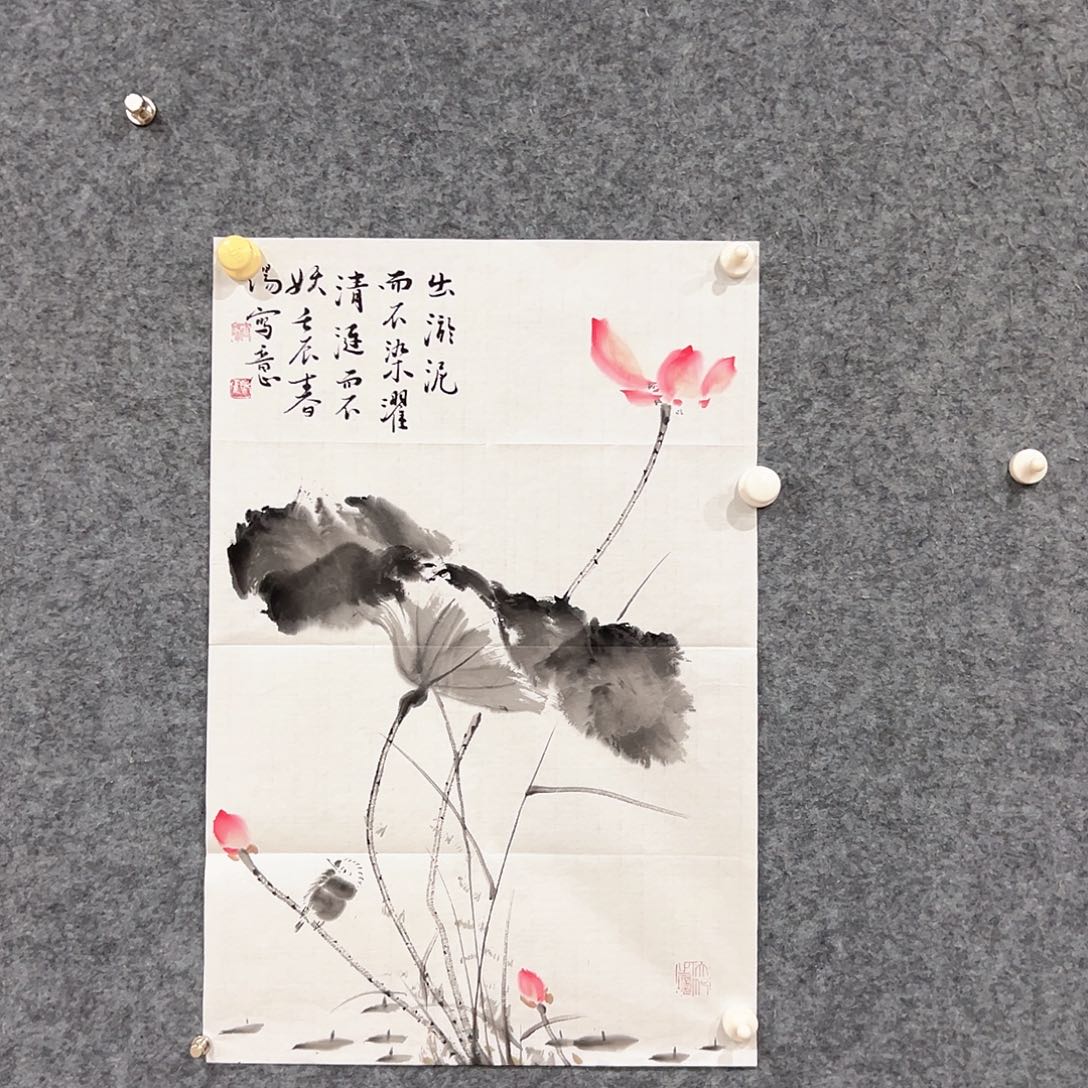 出淤泥
而不染濯
清涟而不
妖壬辰春
湯写意